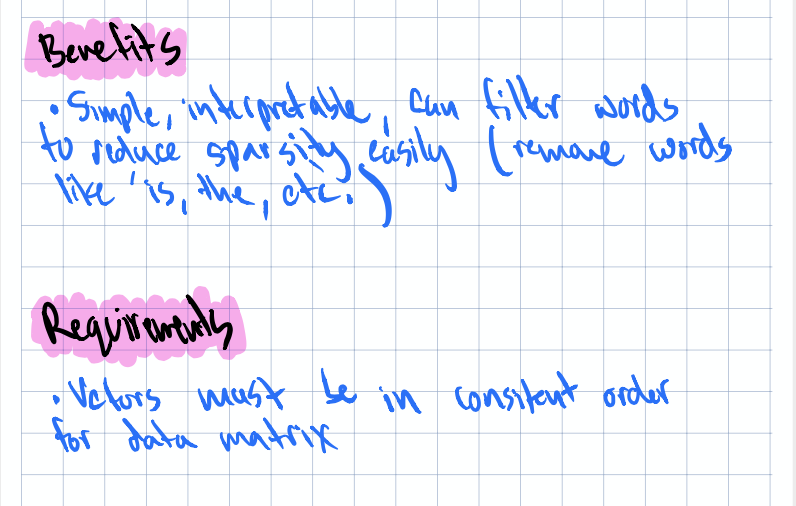 Benefits
• Simple, interpretable, can filter words
to reduce sparsity easily (remove words
like 'is, the, etc.)
Requirements
• Vctors must be in consitent order
for data matrix